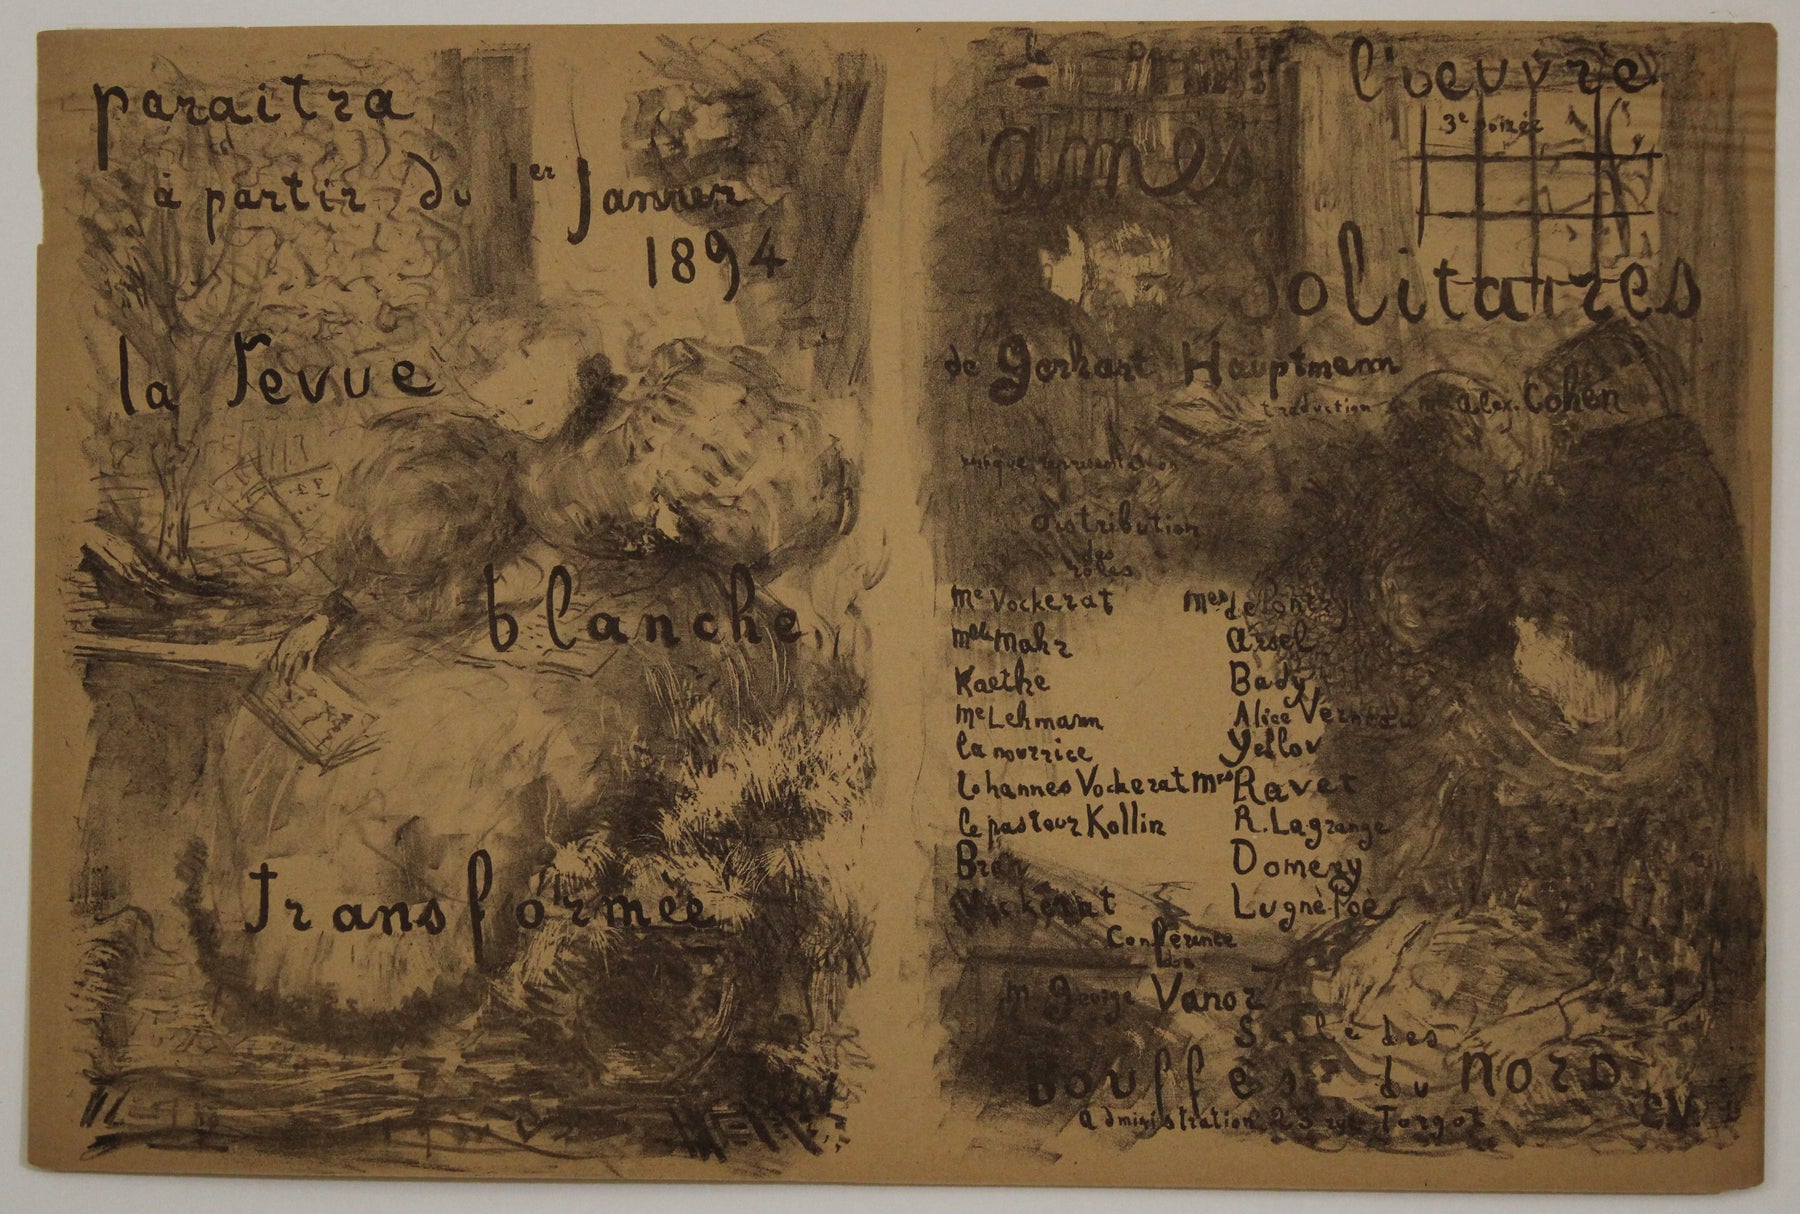 paraitra
à partir du 1er Janvier
1894
la revue
blanche
transformée
Décembre
1893
l'oeuvre
3e soirée
âmes
solitaires
de Gerhart Hauptmann
traduction de Mr Alex. Cohen
unique représentation
distribution
des
rôles
Me Vockerat Mes de Pontry
Mlle Mahr Arsel
Kaethe Bady
Me Lehmann Alice Verneau
la nourrice Yellov
Iohannes Vockerat Mrs Ravet
Le pasteur Kollin R. Lagrange
Bran Domeny
Vockerat Lugné Poë
Conférence
de
M George Vanor
Salle des
bouffes du NORD
administration 23 rue Turgot
E.V.